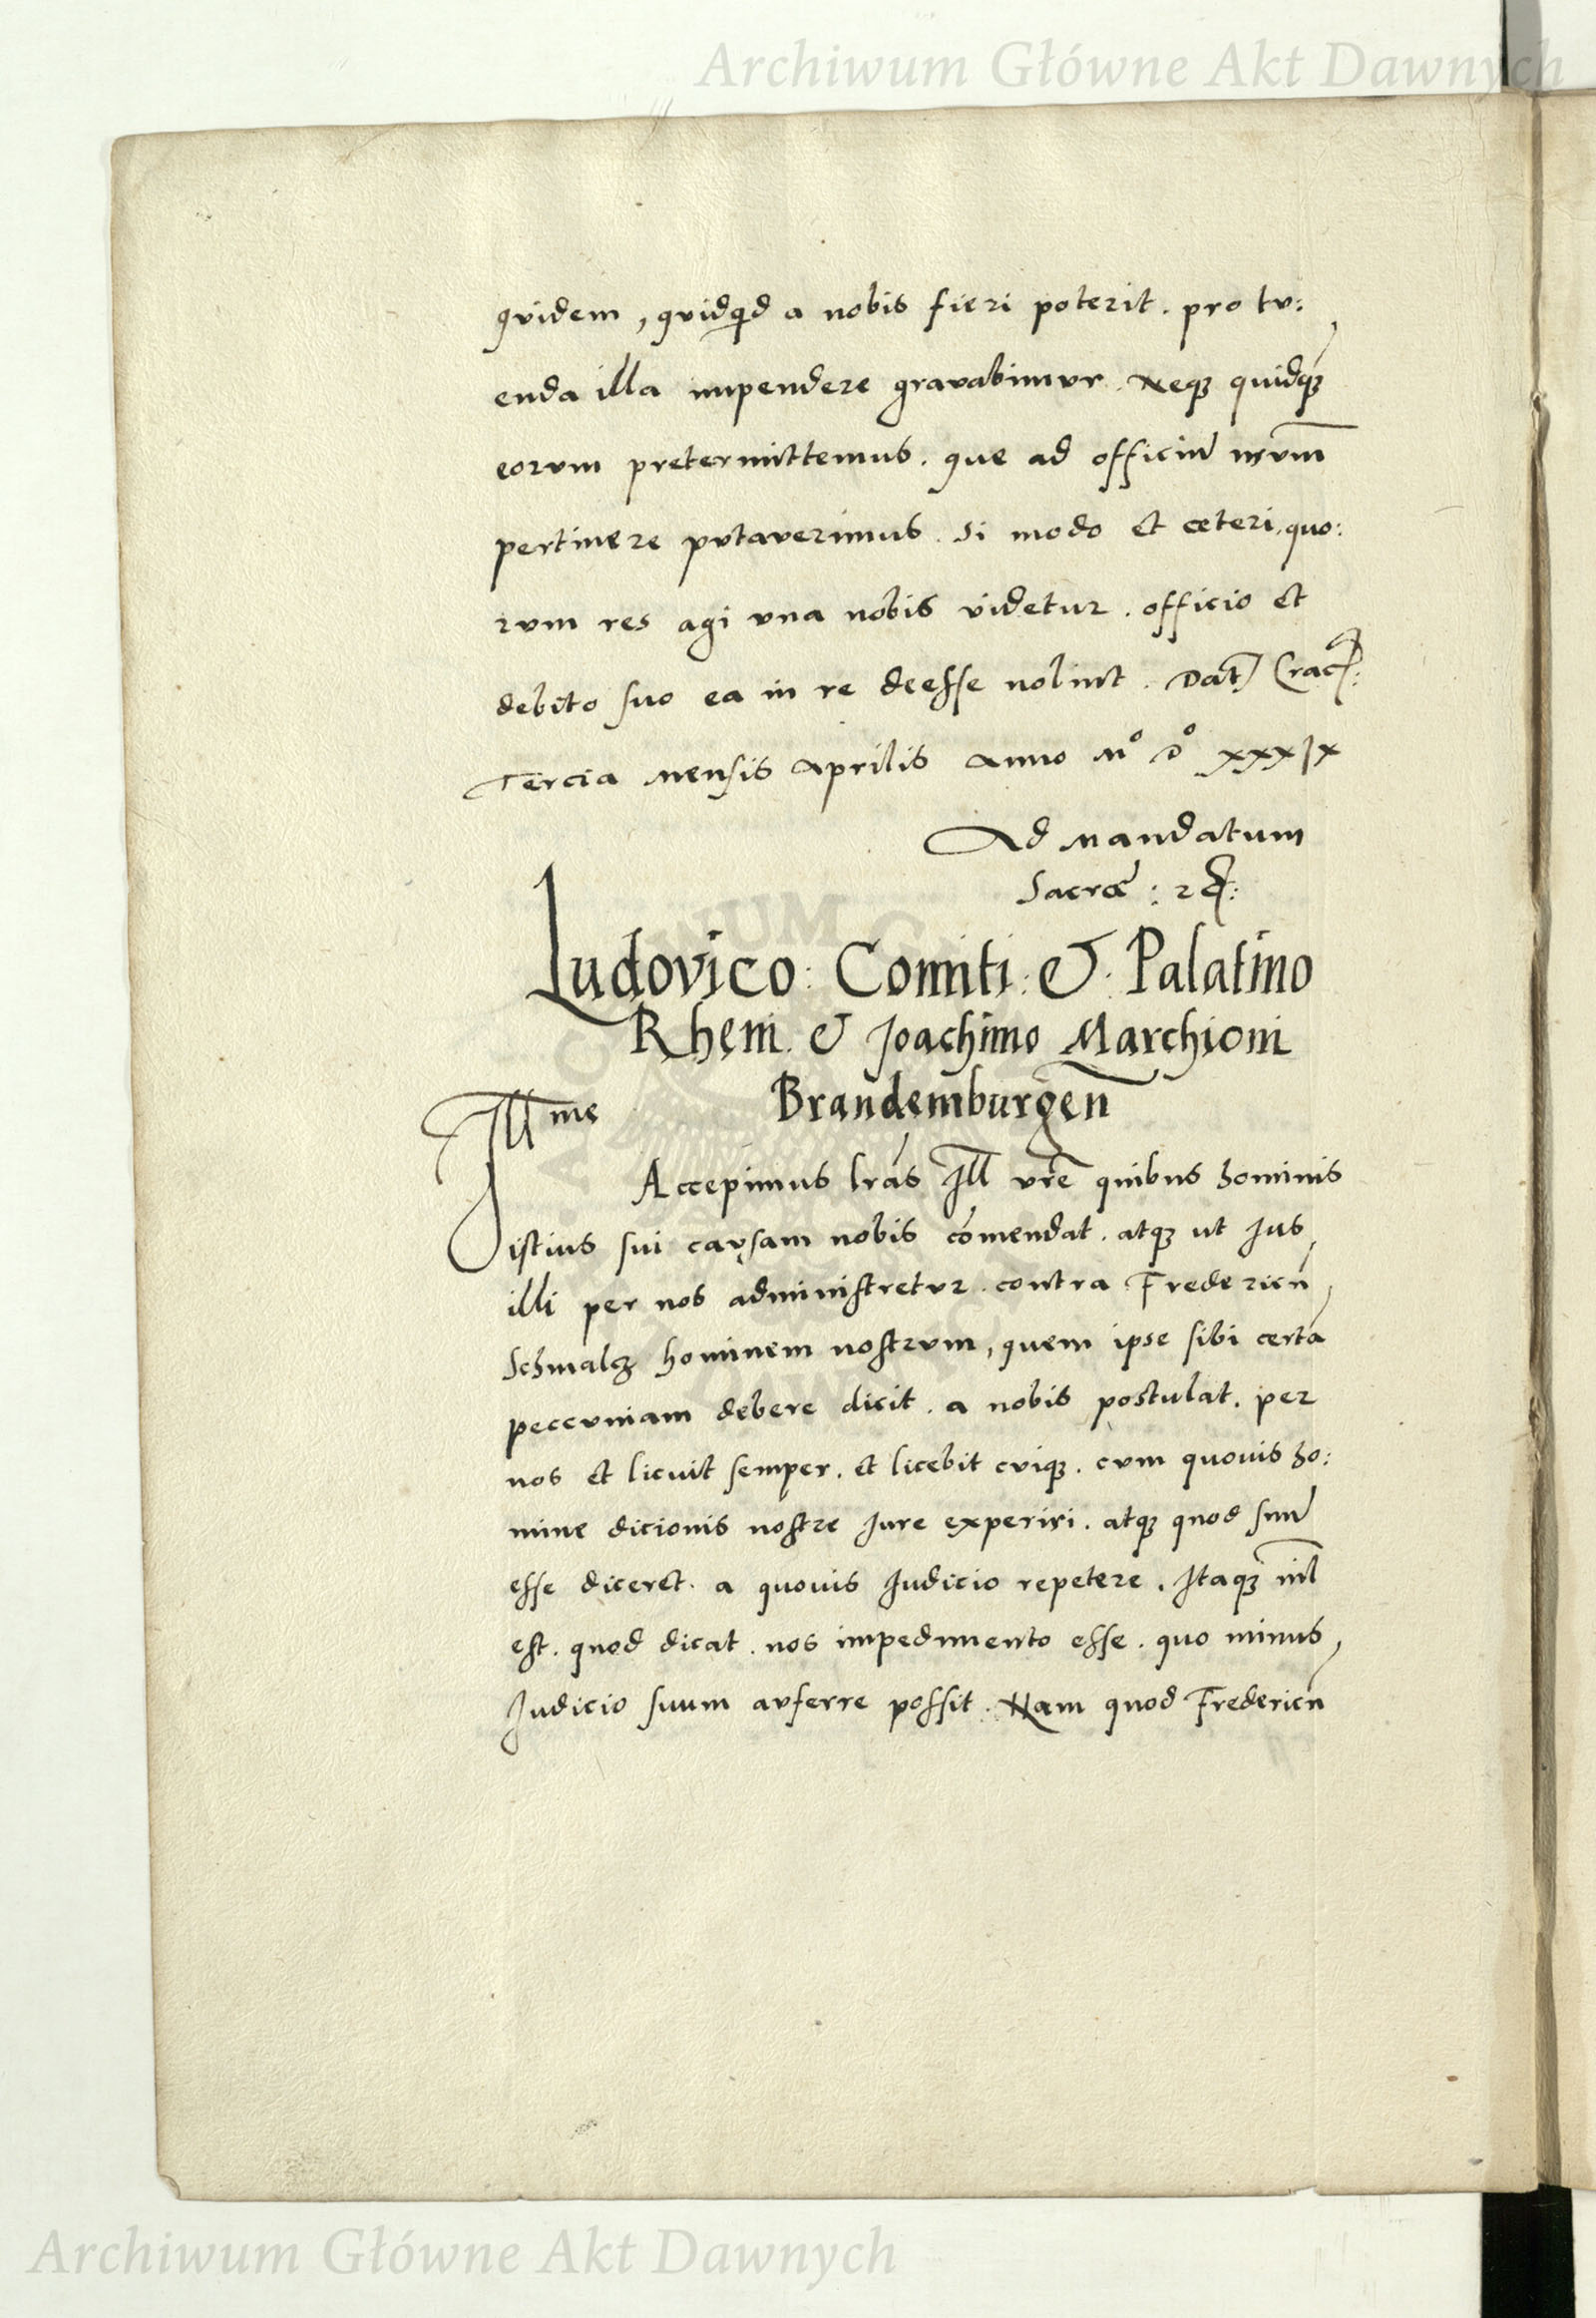 Archiwum Główne Akt Dawnych
quidem, quidqid a nobis fieri poterit. pro tu:
enda illa impendere gravabimur. Neqꝫ quidqꝫ
eorum pretermittemus. que ad officiu̅ nr̅um
pertinere putaverimus. Si modo et ceteri, quo:
rum res agi una nobis videtur. officio et
debito suo ea in re deesse nolint. Dat̅ Crac̅:
Tercia mensis Aprilis Anno Mº Dº XXXIX
Ad mandatum
Sacræ: R
Ludovico: Comiti: & Palatino
Rheni. & Joachimo Marchioni
Brandemburgen̅
Illme
Accepimus lr̅as Ill vr̅e quibus hominis
istius sui caụsam nobis co̅mendat. atqꝫ ut Jus
illi per nos administretur. contra Fredericu̅
Schmalcz hominem nostrum, quem ipse sibi certa̅
peccuniam debere dicit. a nobis postulat. per
nos et licuit semper. et licebit cuiqꝫ. cum quovis ho:
mine dicionis nostre Jure experiri. atqꝫ quod suu̅
esse diceret. a quovis Judicio repetere. Itaqꝫ nil̅
est. quod dicat. nos impedimento esse. quo minus
Judicio suum auferre possit. Nam quod Fredericu̅
Archiwum Główne Akt Dawnych